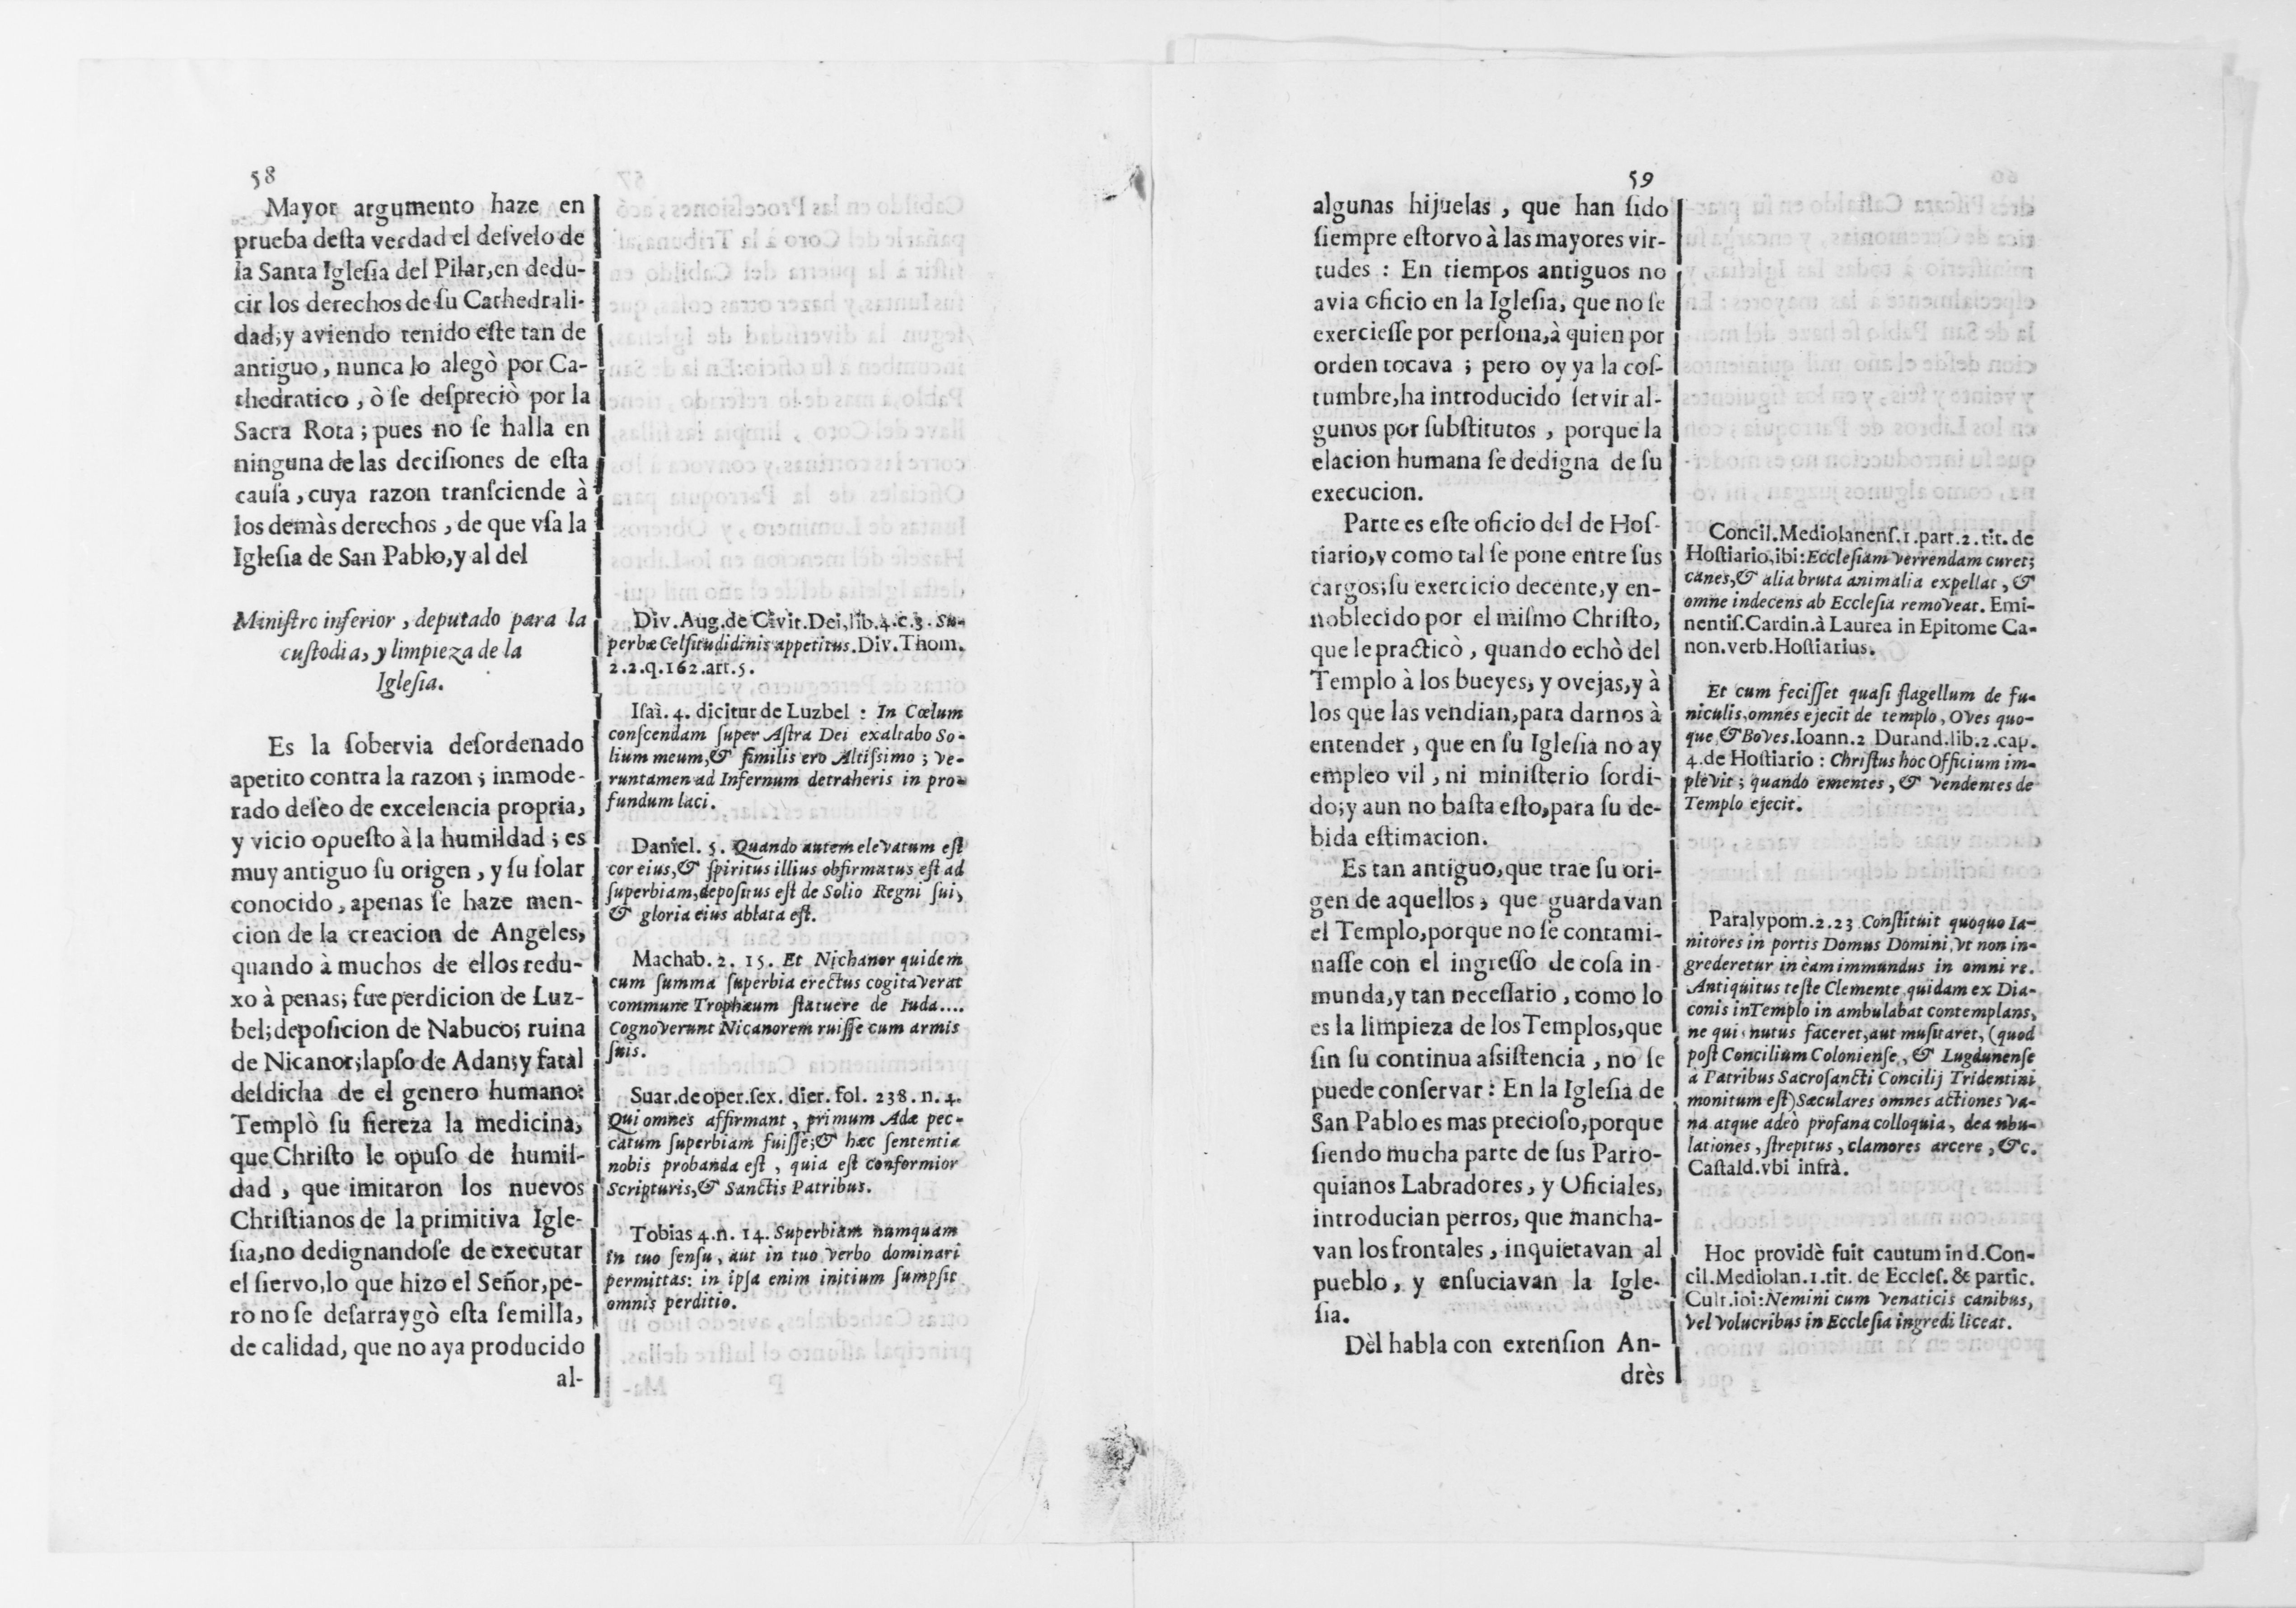 58
Mayor argumento haze en
prueba desta verdad el desvelo de
la Santa Iglesia del Pilar, en dedu-
cir los derechos de su Cathedrali-
dad; y aviendo tenido este tan de
antiguo, nunca lo alegò por Ca-
thedratico, ò se despreciò por la
Sacra Rota; pues no se halla en
ninguna de las decisiones de esta
causa, cuya razon transciende à
los demàs derechos, de que vsa la
Iglesia de San Pablo, y al del
Ministro inferior, deputado para la
custodia, y limpieza de la
Iglesia.
Es la sobervia desordenado
apetito contra la razon; inmode-
rado deseo de excelencia propria,
y vicio opuesto à la humildad; es
muy antiguo su origen, y su solar
conocido, apenas se haze men-
cion de la creacion de Angeles,
quando à muchos de ellos redu-
xo à penas; fue perdicion de Luz-
bel; deposicion de Nabuco; ruina
de Nicanor; lapso de Adan; y fatal
desdicha de el genero humano:
Templò su fiereza la medicina,
que Christo le opuso de humil-
dad, que imitaron los nuevos
Christianos de la primitiva Igle-
sia, no dedignandose de executar
el siervo, lo que hizo el Señor, pe-
ro no se desarraygò esta semilla,
de calidad, que no aya producido
al-
Div. Aug. de Civit. Dei, lib. 4. c. 3. Su-
perbæ Celsitudidinis appetitus. Div. Thom.
2. 2. q. 162. art. 5.
Isaì. 4. dicitur de Luzbel: In Cœlum
conscendam super Astra Dei exaltabo So-
lium meum, & similis ero Altissimo; ve-
runtamen ad Infernum detraheris in pro-
fundum laci.
Daniel. 5. Quando autem elevatum est
cor eius, & spiritus illius obfirmatus est ad
superbiam, depositus est de Solio Regni sui,
& gloria eius ablata est.
Machab. 2. 15. Et Nichanor quidem
cum summa superbia erectus cogitaverat
commune Trophæum statuere de Iuda....
Cognoverunt Nicanorem ruisse cum armis
suis.
Suar. de oper. sex. dier. fol. 238. n. 4.
Qui omnes affirmant, primum Adæ pec-
catum superbiam fuisse; & hæc sententia
nobis probanda est, quia est conformior
Scripturis, & Sanctis Patribus.
Tobias 4. n. 14. Superbiam numquam
in tuo sensu, aut in tuo verbo dominari
permittas: in ipsa enim initium sumpsit
omnis perditio.
59
algunas hijuelas, que han sido
siempre estorvo à las mayores vir-
tudes: En tiempos antiguos no
avia oficio en la Iglesia, que no se
exerciesse por persona, à quien por
orden tocava; pero oy ya la cos-
tumbre, ha introducido servir al-
gunos por substitutos, porque la
elacion humana se dedigna de su
execucion.
Parte es este oficio del de Hos-
tiario, y como tal se pone entre sus
cargos; su exercicio decente, y en-
noblecido por el mismo Christo,
que le practicò, quando echò del
Templo à los bueyes, y ovejas, y à
los que las vendian, para darnos à
entender, que en su Iglesia no ay
empleo vil, ni ministerio sordi-
do; y aun no basta esto, para su de-
bida estimacion.
Es tan antiguo, que trae su ori-
gen de aquellos, que guardavan
el Templo, porque no se contami-
nasse con el ingresso de cosa in-
munda, y tan necessario, como lo
es la limpieza de los Templos, que
sin su continua assistencia, no se
puede conservar: En la Iglesia de
San Pablo es mas precioso, porque
siendo mucha parte de sus Parro-
quianos Labradores, y Oficiales,
introducian perros, que mancha-
van los frontales, inquietavan al
pueblo, y ensuciavan la Igle-
sia.
Dèl habla con extension An-
drès
Concil. Mediolanens. 1. part. 2. tit. de
Hostiario, ibi: Ecclesiam verrendam curet;
canes, & alia bruta animalia expellat, &
omne indecens ab Ecclesia removeat. Emi-
nentis. Cardin. à Laurea in Epitome Ca-
non. verb. Hostiarius.
Et cum fecisset quasi flagellum de fu-
niculis, omnes ejecit de templo, Oves quo-
que, & Boves. Ioann. 2 Durand. lib. 2. cap.
4. de Hostiario: Christus hoc Officium im-
plevit; quando ementes, & vendentes de
Templo ejecit.
Paralypom. 2. 23 Constituit quoquo Ia-
nitores in portis Domus Domini, vt non in-
grederetur in èam immundus in omni re.
Antiquitus teste Clemente quidam ex Dia-
conis in Templo in ambulabat contemplans,
ne qui nutus faceret, aut musitaret, (quod
post Concilium Coloniense, & Lugdunense
à Patribus Sacrosancti Concilij Tridentini
monitum est) Sæculares omnes actiones va-
na atque adeò profana colloquia, deanbu-
lationes, strepitus, clamores arcere, &c.
Castald. vbi infrà.
Hoc providè fuit cautum in d. Con-
cil. Mediolan. 1. tit. de Eccles. & partic.
Cult. ioi: Nemini cum venaticis canibus,
vel volucribus in Ecclesia ingredi liceat.